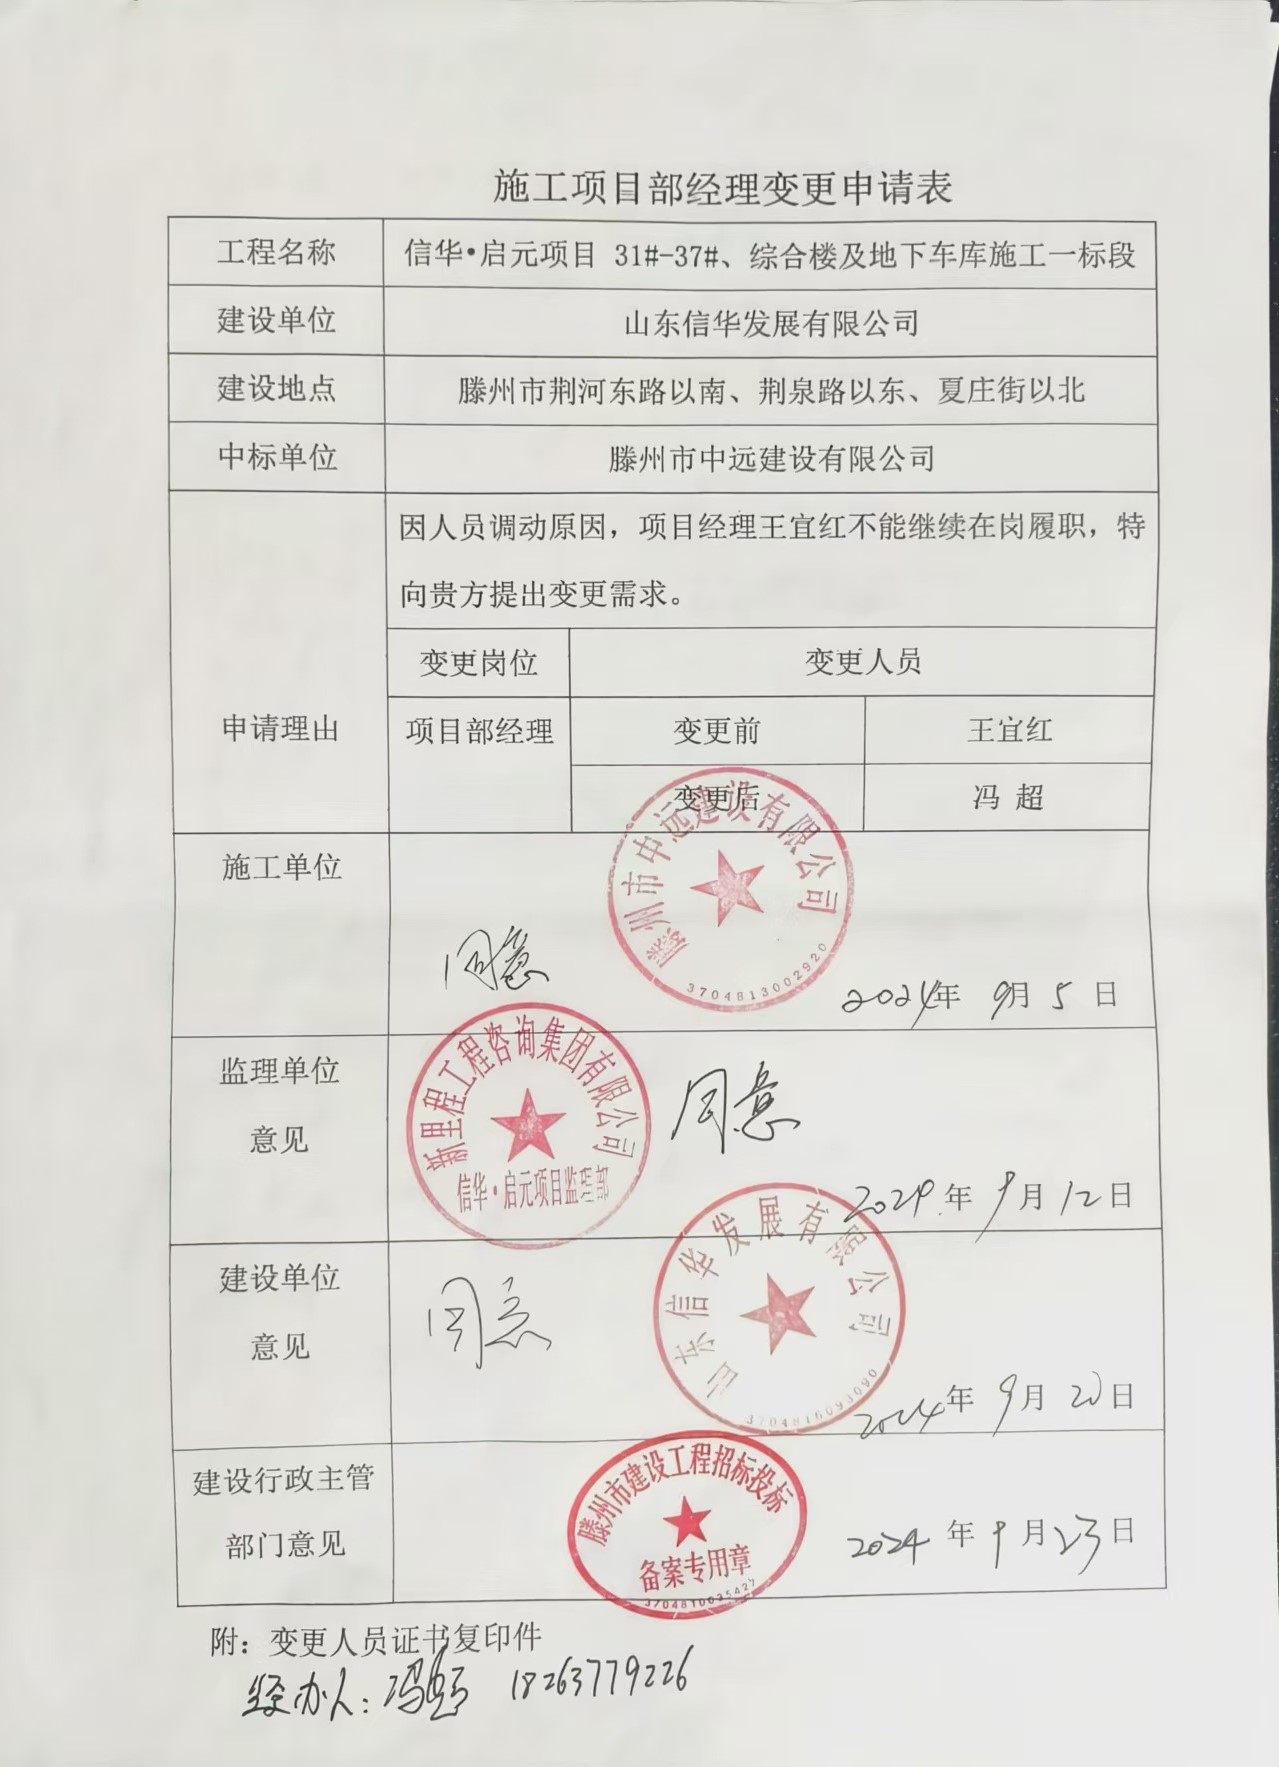 施工项目部经理变更申请表
工程名称 信华•启元项目 31#-37#、综合楼及地下车库施工一标段
建设单位 山东信华发展有限公司
建设地点 滕州市荆河东路以南、荆泉路以东、夏庄街以北
中标单位 滕州市中远建设有限公司
因人员调动原因，项目经理王宜红不能继续在岗履职，特
向贵方提出变更需求。
变更岗位 变更人员
申请理由 项目部经理 变更前 王宜红
变更后 冯 超
滕州市中远建设有限公司
3704813002920
施工单位
同意
2024年 9月 5 日
新里程工程咨询集团有限公司
信华·启元项目监理部
监理单位
意见
同意
2024年 9月 12日
山东信华发展有限公司
3704816093090
建设单位
意见
同意
2024年 9月 20日
滕州市建设工程招标投标
备案专用章
建设行政主管
部门意见
2024年 9月23日
附：变更人员证书复印件
经办人：冯超 18263779226